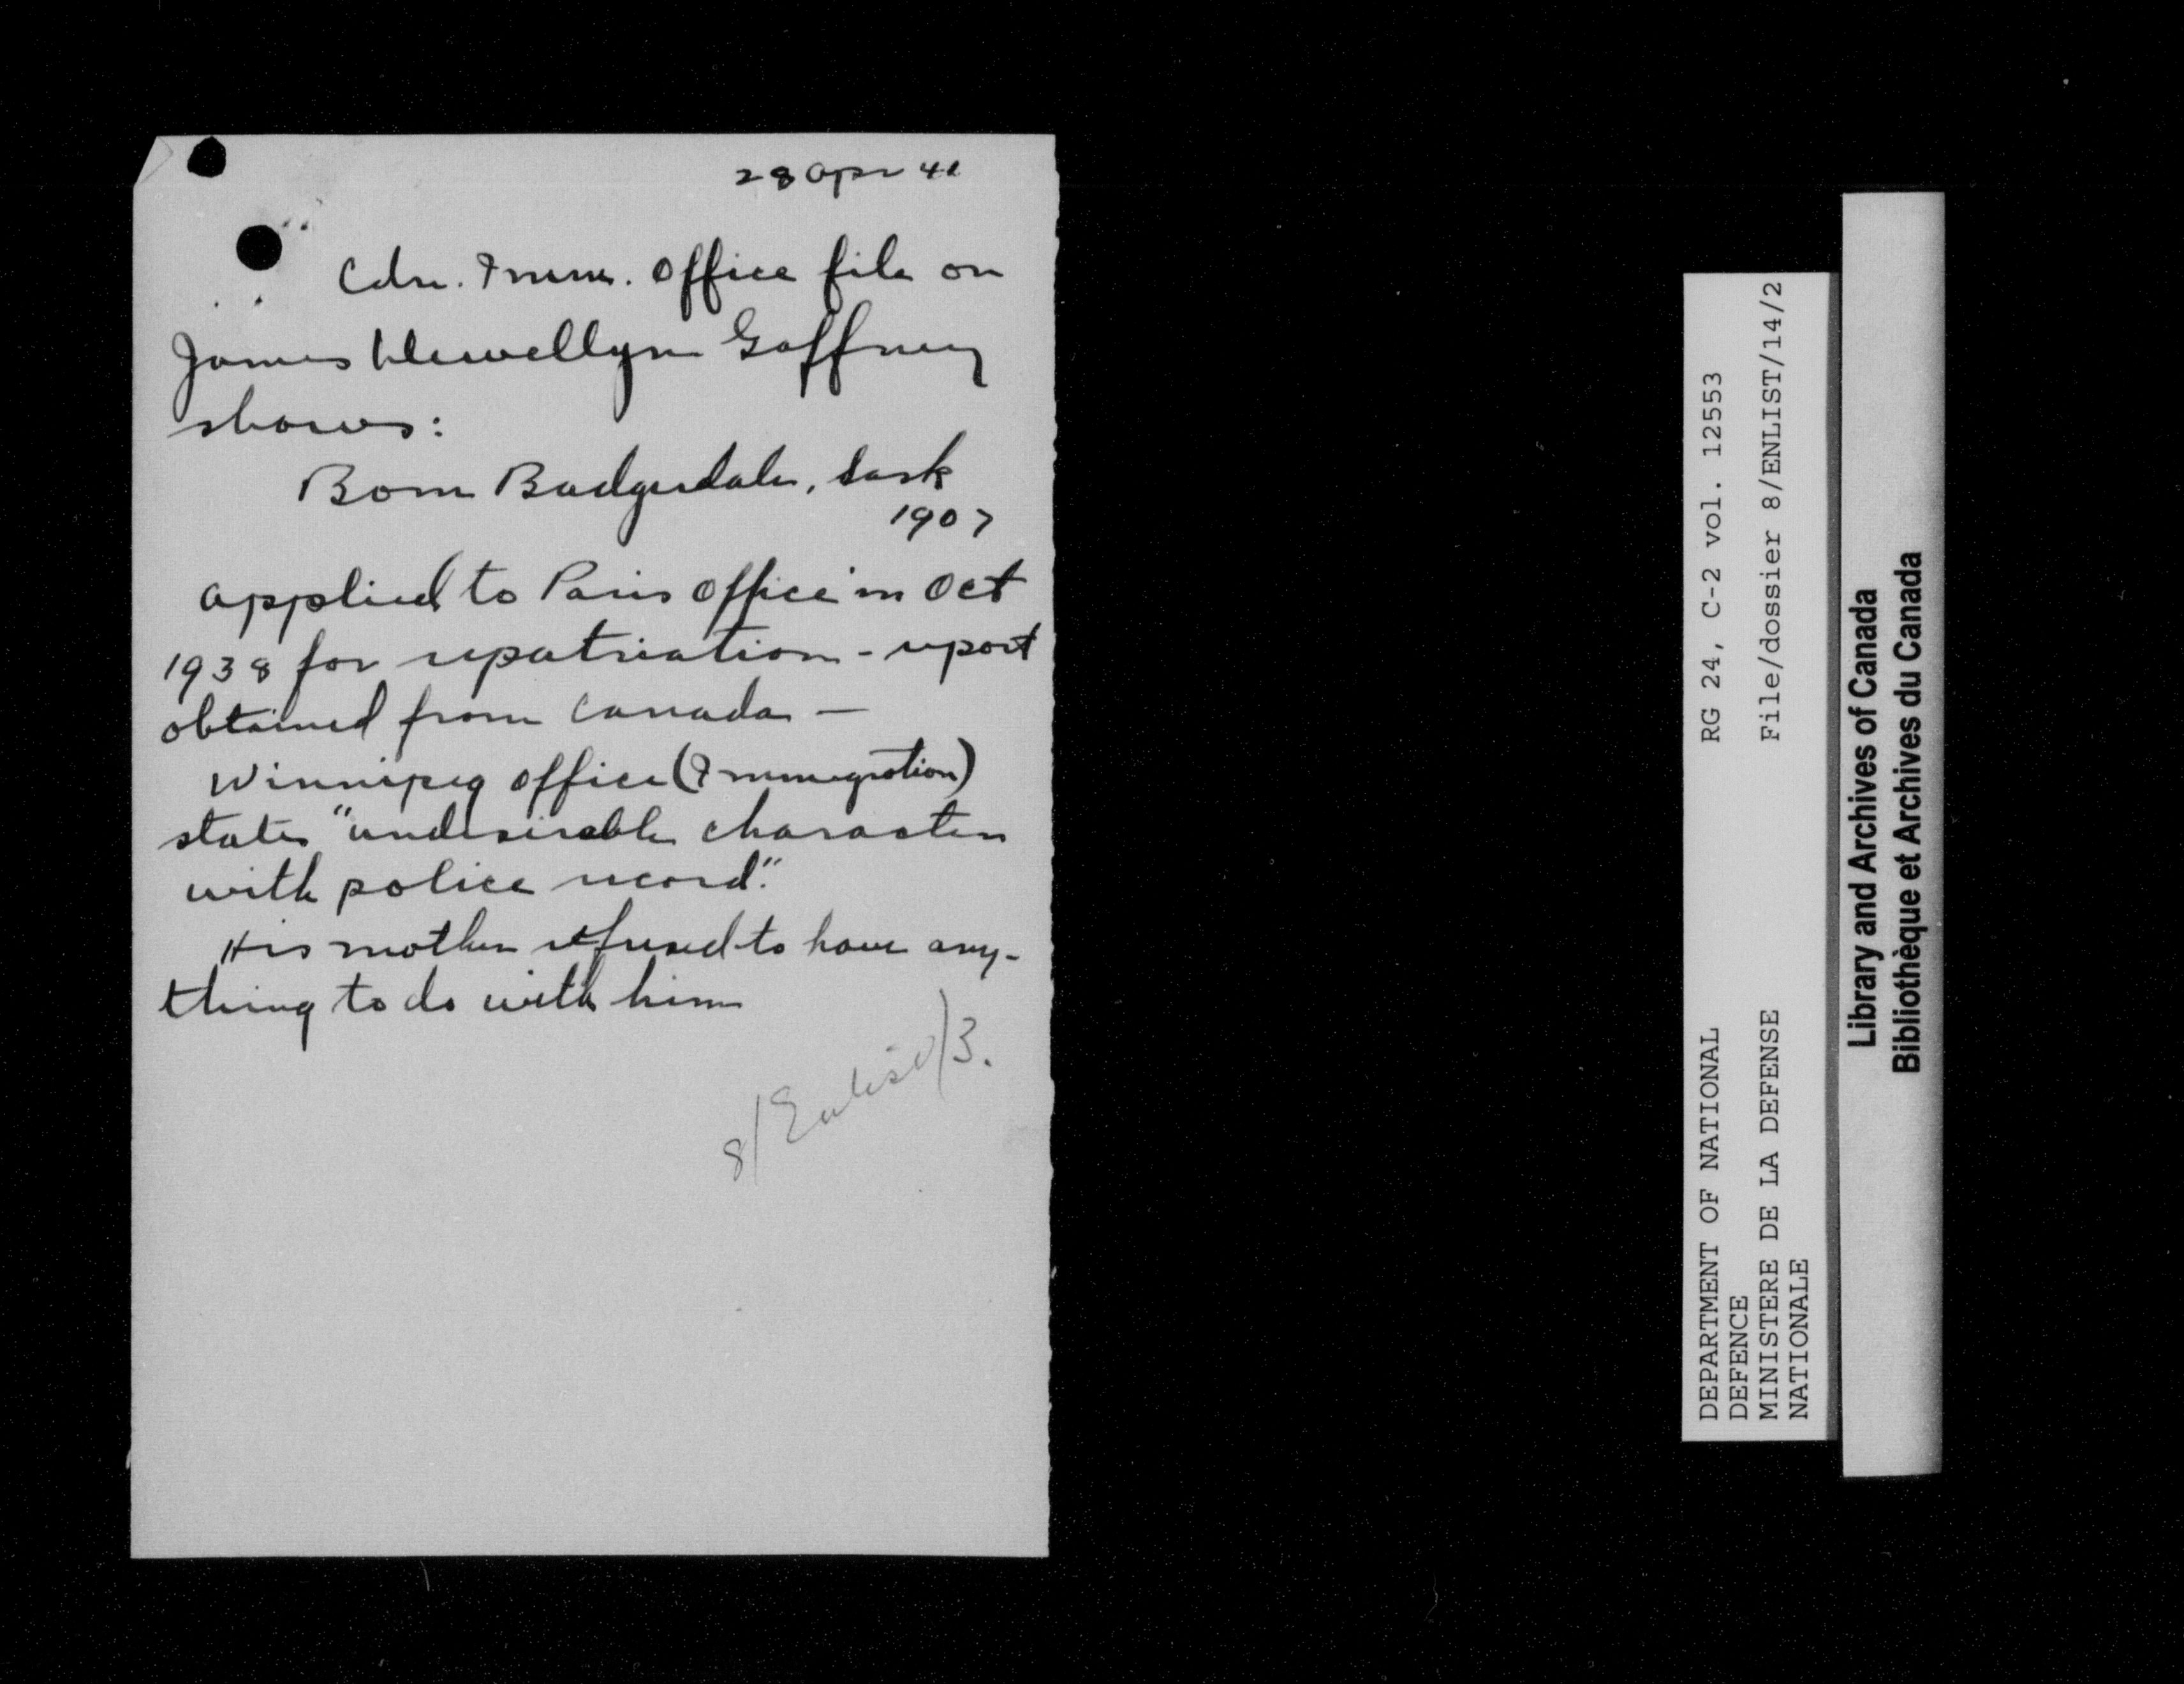 28 Apr 41
Cdn. Imm. Office file on
James Llewellyn Gaffney
shows:
Born Badgerdale, Sask
1907
applied to Paris office in Oct
1938 for repatriation - report
obtained from Canada —
Winnipeg office (Immigration)
states "undesirable character
with police record."
His mother refused to have any-
thing to do with him
8/Enlist/3.
RG 24, C-2 vol. 12553
File/dossier 8/ENLIST/14/2
DEPARTMENT OF NATIONAL
DEFENCE
MINISTERE DE LA DEFENSE
NATIONALE
Library and Archives of Canada
Bibliothèque et Archives du Canada